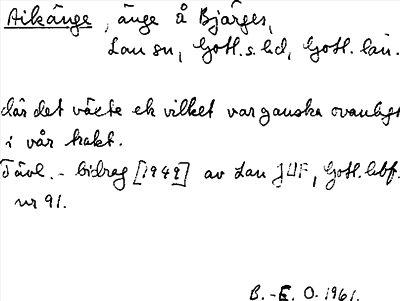 Aikänge, änge å Bjärges,
Lau sn, Gotl. s. hd, Gotl. län.
där det växte ek vilket var ganska ovanligt
i vår trakt.
Tävl. - bidrag [1949] av Lau JUF, Gotl. lbf.
nr 91.
B.-E. O. 1961.